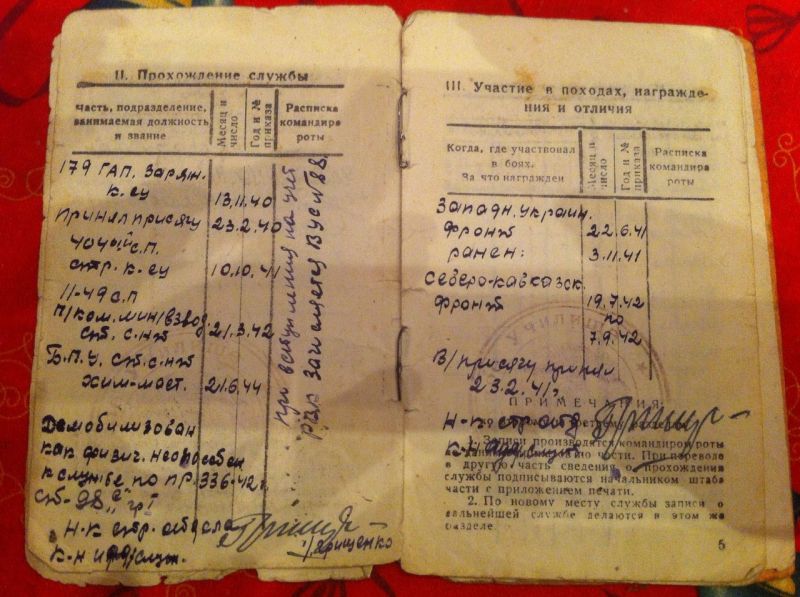 II. Прохождение службы
Часть, подразделение, занимаемая должность и звание
Месяц и число
Год и № приказа
Расписка командира роты
179 ГАП. Заряж.
к-су
13.11.40
Принял присягу
23.2.40
404ый с.п.
стр. к-су
10.10.41
11-49 с.п
п/ком. мин/взвод.
ст. с-нт
21.3.42
Б.П.У. ст. с-нт
хим-маст.
21.6.44
при вступлении на учет
РВК зачисляется ВУС №88
Демобилизован
как физич. неспособен
к службе по ПР. 336-42г.
гр I
Н-к стр. отдела
к-н
/Ярищенко
III. Участие в походах, награждения и отличия
Когда, где участвовал в боях.
За что награжден
Месяц и число
Год и № приказа
Расписка командира роты
Западн. Украин.
фронт
22.6.41
ранен:
3.11.41
Северо-Кавказск.
фронт
19.7.42
по
7.9.42
В/присягу принял
23.2.41г.
ПРИМЕЧАНИЯ:
Н-к стр отд
к-н
1. Записи производятся командиром роты
части. При переводе
в другую часть сведения о прохождении
службы подписываются начальником штаба
части с приложением печати.
2. По новому месту службы записи о
дальнейшей службе делаются в этом же
разделе.
5